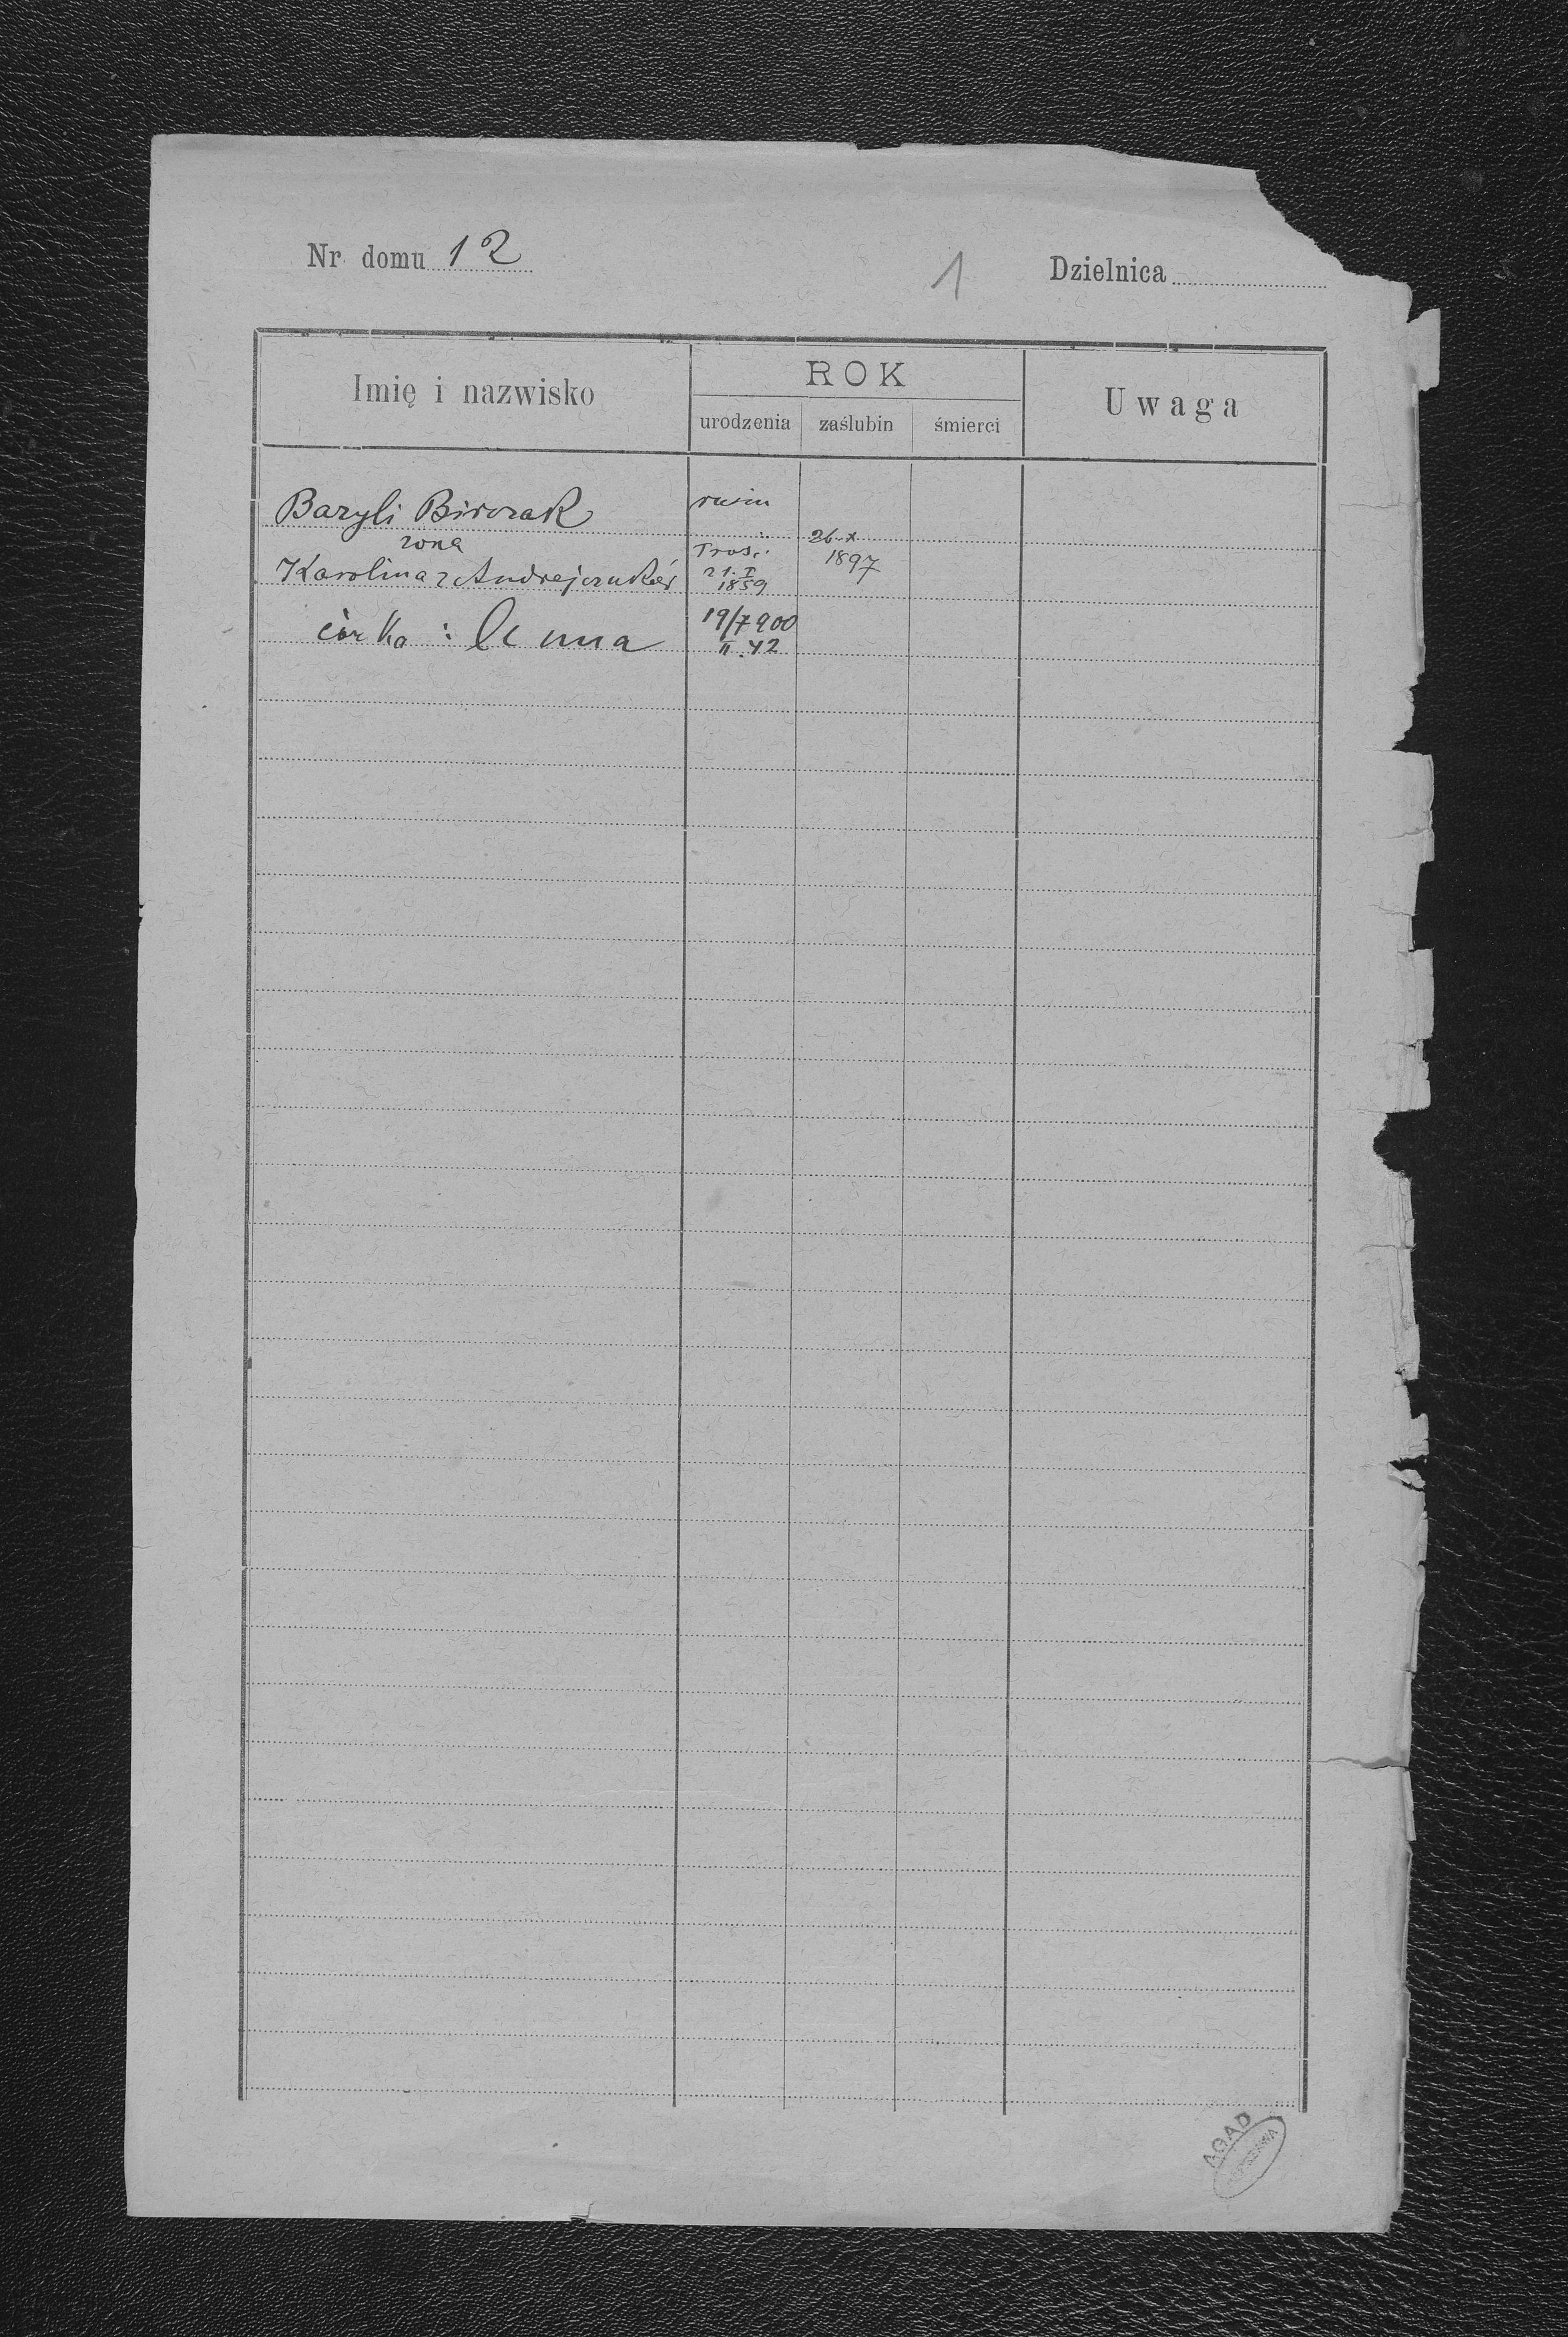 Nr domu 12
1
Dzielnica
Imię i nazwisko
ROK
urodzenia zaślubin śmierci
Uwaga
Bazyli Birczak
żona
26. X
1897
Karolina z Andrejczuków
21. I
1859
córka : Anna
19/7 900
II. 42
AGAD
WARSZAWA